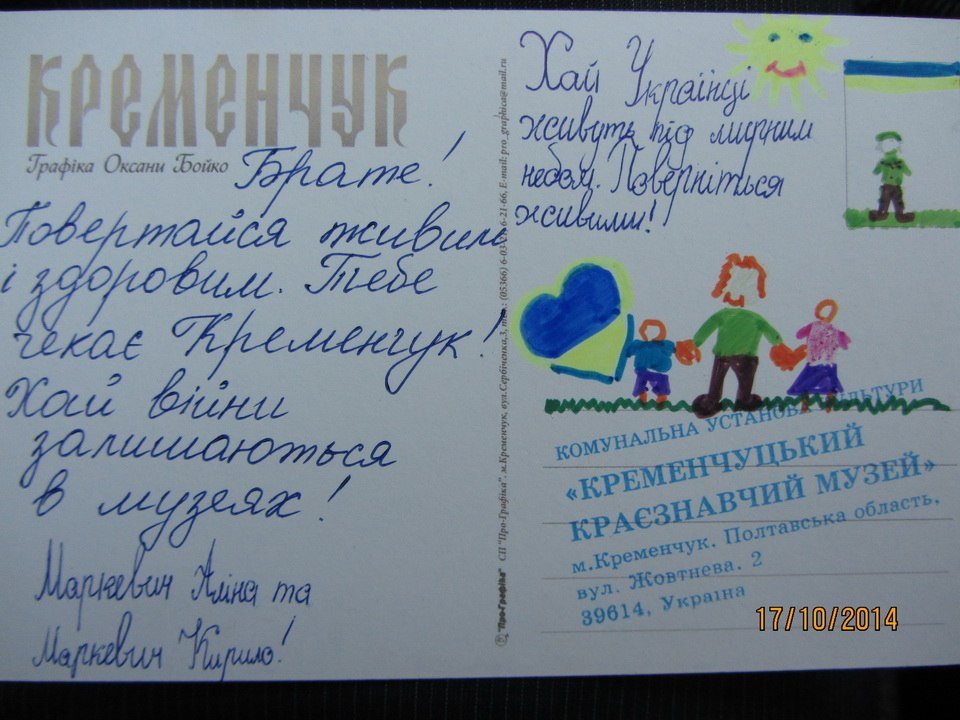 КРЕМЕНЧУК
Графіка Оксани Бойко
Брате!
Повертайся живим
і здоровим. Тебе
чекає Кременчук!
Хай війни
залишаються
в музеях!
Маркевич Аліна та
Маркевич Кирило!
СП "Про-Графіка". м.Кременчук, вул.Сербіченка,3, тел.: (05366) 6-03-01, 6-21-66, E-mail: pro_graphica@mail.ru
"Про-Графіка"
Хай Українці
живуть під мирним
небом. Поверніться
живими!
КОМУНАЛЬНА УСТАНОВА КУЛЬТУРИ
«КРЕМЕНЧУЦЬКИЙ
КРАЄЗНАВЧИЙ МУЗЕЙ»
м.Кременчук. Полтавська область,
вул. Жовтнева. 2
39614, Україна
17/10/2014